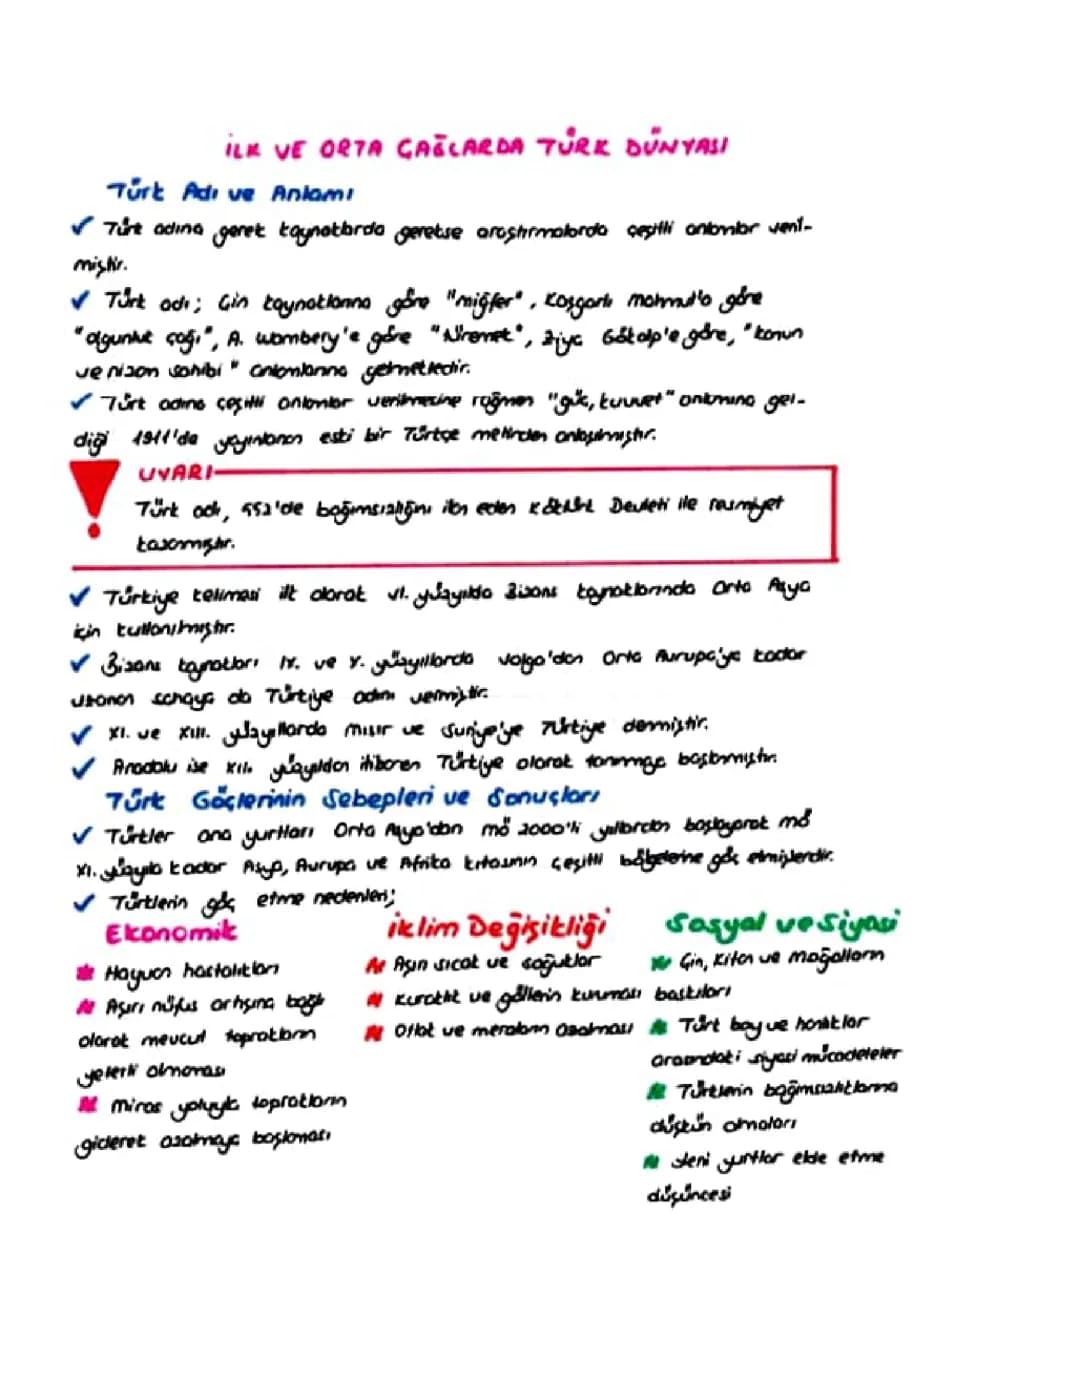 İLK VE ORTA ÇAĞLARDA TÜRK DÜNYASI
Türk Adı ve Anlamı
✓ Türk adına gerek kaynaklarda gerekse araştırmalarda çeşitli anlamlar veril-
miştir.
✓ Türk adı; Çin kaynaklarına göre "miğfer", Kaşgarlı Mahmut'a göre
"olgunluk çağı", A. Wambery'e göre "türemek", Ziya Gökalp'e göre, "kanun
ve nizam sahibi" anlamlarına gelmektedir.
✓ Türk adına çeşitli anlamlar verilmesine rağmen "güç, kuvvet" anlamına gel-
diği 1911'de yayınlanan eski bir Türkçe metinden anlaşılmıştır.
UYARI
Türk adı, 552'de bağımsızlığını ilan eden Köktürk Devleti ile resmiyet
kazanmıştır.
✓ Türkiye kelimesi ilk olarak VI. yüzyılda Bizans kaynaklarında Orta Asya
için kullanılmıştır.
✓ Bizans kaynakları IX. ve X. yüzyıllarda Volga'dan Orta Avrupa'ya kadar
uzanan sahaya da Türkiye adını vermiştir.
✓ XI. ve XIII. yüzyıllarda Mısır ve Suriye'ye Türkiye denmiştir.
✓ Anadolu ise XII. yüzyıldan itibaren Türkiye olarak tanınmaya başlanmıştır.
Türk Göçlerinin Sebepleri ve Sonuçları
✓ Türkler ana yurtları Orta Asya'dan MÖ 2000'li yıllardan başlayarak MÖ
XI. yüzyıla kadar Asya, Avrupa ve Afrika kıtasının çeşitli bölgelerine göç etmişlerdir.
✓ Türklerin göç etme nedenleri;
Ekonomik
Hayvan hastalıkları
Aşırı nüfus artışına bağlı
olarak mevcut toprakların
yeterli olmaması
Miras yoluyla toprakların
giderek azalmaya başlaması
İklim Değişikliği
Aşırı sıcak ve soğuklar
Kuraklık ve göllerin kuruması
Otlak ve meraların azalması
Sosyal ve Siyasi
Çin, Kitan ve Moğolların
baskıları
Türk boy ve hanlıklar
arasındaki siyasi mücadeleler
Türklerin bağımsızlıklarına
düşkün olmaları
Yeni yurtlar elde etme
düşüncesi